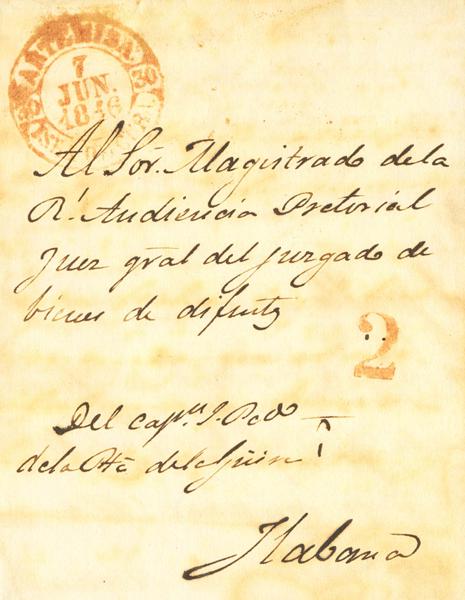 ARTEMISA
7
JUN.
1846
Al Sõr. Magistrado de la
Rl. Audiencia Pretorial
Juez gral del juzgado de
bienes de difuntos
2
Del capn. J. Pedo
de la
Habana